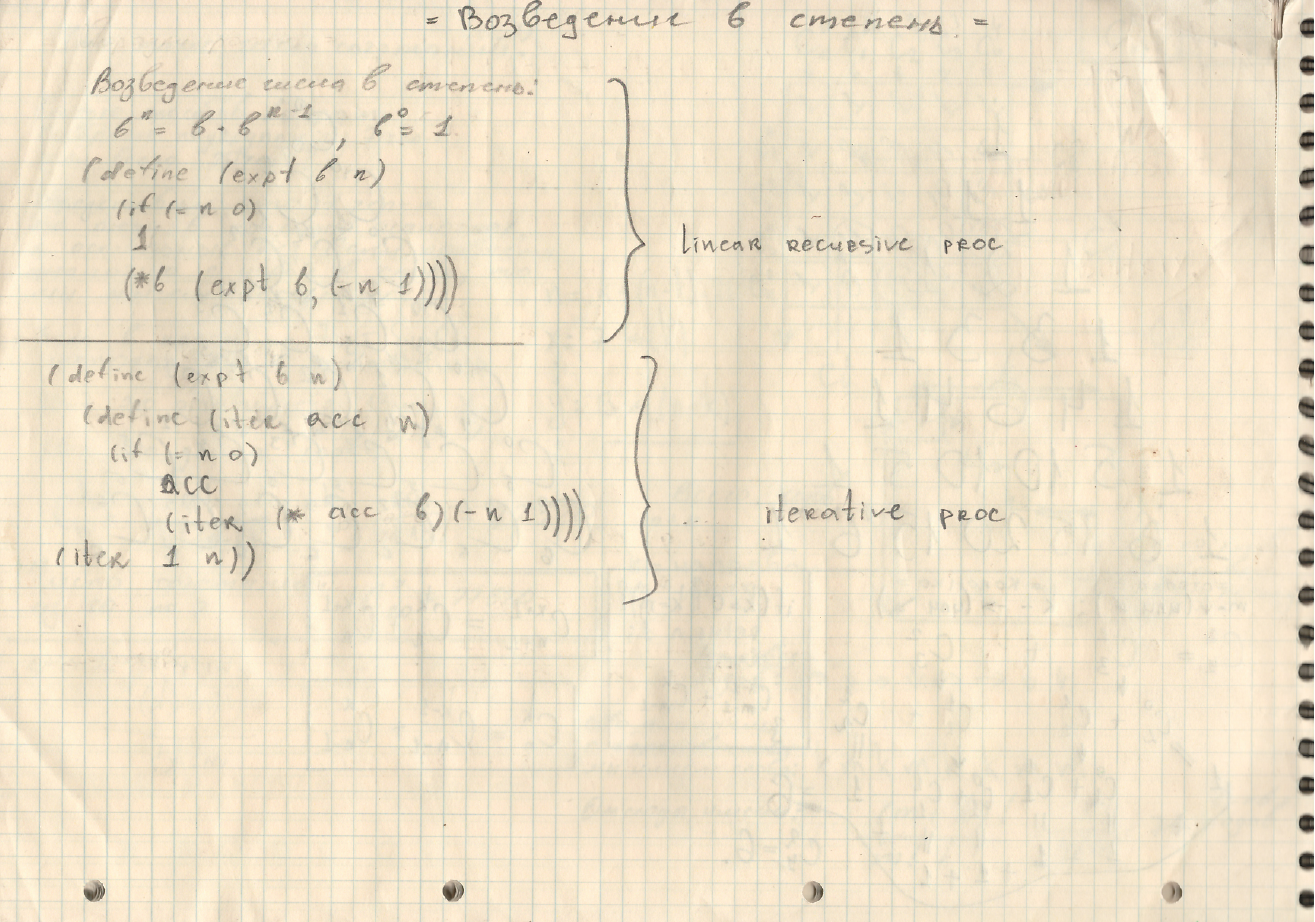 = Возведение в степень =
Возведение числа в степень:
b^n = b · b^(n-1), b^0 = 1
(define (expt b n)
(if (= n 0)
1
(*b (expt b, (-n 1))))
linear recursive proc
(define (expt b n)
(define (iter acc n)
(if (= n 0)
acc
(iter (* acc b) (-n 1))))
(iter 1 n))
iterative proc